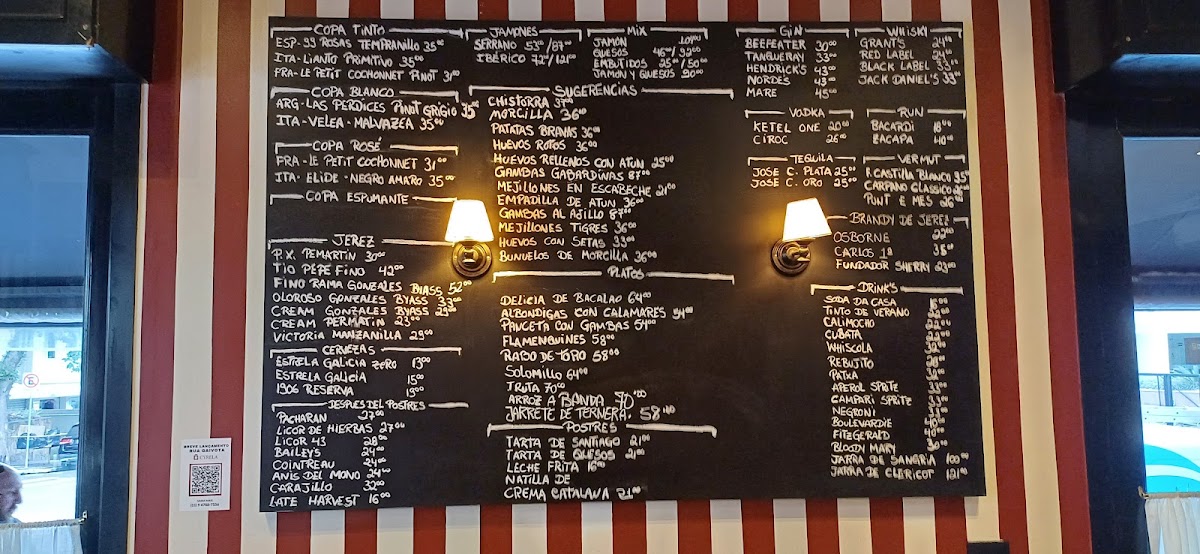 COPA TINTO
ESP-99 ROSAS TEMPRANILLO 35⁰⁰
ITA-LIANTO PRIMITIVO 35⁰⁰
FRA-LE PETIT COCHONNET PINOT 31⁰⁰
COPA BLANCO
ARG-LAS PERDICES PINOT GRIGIO 35⁰⁰
ITA-VELEA-MALVAZEA 35⁰⁰
COPA ROSÉ
FRA-LE PETIT COCHONNET 31⁰⁰
ITA-ELIDE-NEGRO AMARO 35⁰⁰
COPA ESPUMANTE
JEREZ
P.X. PEMARTIN 30⁰⁰
TIO PEPE FINO 42⁰⁰
FINO RAMA GONZALES BYASS 52⁰⁰
OLOROSO GONZALES BYASS 33⁰⁰
CREAM GONZALES BYASS 29⁰⁰
CREAM PERMATIN 23⁰⁰
VICTORIA MANZANILLA 29⁰⁰
CERVEZAS
ESTRELA GALICIA ZERO 13⁰⁰
ESTRELA GALICIA 15⁰⁰
1906 RESERVA 19⁰⁰
DESPUES DEL POSTRES
PACHARAN 27⁰⁰
LICOR DE HIERBAS 27⁰⁰
LICOR 43 28⁰⁰
BAILEYS 24⁰⁰
COINTREAU 24⁰⁰
ANIS DEL MONO 24⁰⁰
CARAJILLO 32⁰⁰
LATE HARVEST 16⁰⁰
JAMONES
SERRANO 53⁰⁰/87⁰⁰
IBÉRICO 72⁰⁰/121⁰⁰
MIX
JAMÓN
QUESOS 46⁰⁰/92⁰⁰
EMBUTIDOS 25⁰⁰/50⁰⁰
JAMON Y QUESOS 90⁰⁰
SUGERENCIAS
CHISTORRA 37⁰⁰
MORCILLA 36⁰⁰
PATATAS BRAVAS 36⁰⁰
HUEVOS ROTOS 36⁰⁰
HUEVOS RELLENOS CON ATUN 25⁰⁰
GAMBAS GABARDINAS 87⁰⁰
MEJILLONES EN ESCABECHE 21⁰⁰
EMPADILLA DE ATUN 36⁰⁰
GAMBAS AL AJILLO 87⁰⁰
MEJILLONES TIGRES 36⁰⁰
HUEVOS CON SETAS 33⁰⁰
BUNUELOS DE MORCILLA 36⁰⁰
PLATOS
DELICIA DE BACALAO 64⁰⁰
ALBONDIGAS CON CALAMARES 54⁰⁰
PANCETA CON GAMBAS 54⁰⁰
FLAMENQUINES 58⁰⁰
RABO DE TORO 58⁰⁰
SOLOMILLO 64⁰⁰
TRUTA 70⁰⁰
ARROZ A BANDA 70⁰⁰
JARRETE DE TERNERA. 58⁰⁰
POSTRES
TARTA DE SANTIAGO 21⁰⁰
TARTA DE QUESOS 21⁰⁰
LECHE FRITA 16⁰⁰
NATILLA DE
CREMA CATALANA 21⁰⁰
GIN
BEEFEATER 30⁰⁰
TANQUERAY 33⁰⁰
HENDRICK'S 43⁰⁰
NORDÉS 43⁰⁰
MARE 45⁰⁰
WHISKY
GRANT'S 24⁰⁰
RED LABEL 24⁰⁰
BLACK LABEL 33⁰⁰
JACK DANIEL'S 33⁰⁰
VODKA
KETEL ONE 20⁰⁰
CIROC 26⁰⁰
RUN
BACARDI 18⁰⁰
ZACAPA 40⁰⁰
TEQUILA
JOSE C. PLATA 25⁰⁰
JOSE C. ORO 25⁰⁰
VERMUT
P. CASTILLA BLANCO 35⁰⁰
CARPANO CLASSICO 26⁰⁰
PUNT E MES 26⁰⁰
BRANDY DE JEREZ
OSBORNE 22⁰⁰
CARLOS 1º 35⁰⁰
FUNDADOR SHERRY 23⁰⁰
DRINK'S
SODA DA CASA 16⁰⁰
TINTO DE VERANO
CALIMOCHO 22⁰⁰
CUBATA
WHISCOLA
REBUJITO
PATXA
APEROL SPRITZ 33⁰⁰
CAMPARI SPRITZ 33⁰⁰
NEGRONI
BOULEVARDIE 40⁰⁰
FITZGERALD 40⁰⁰
BLOODY MARY
JARRA DE SANGRIA 100⁰⁰
JARRA DE CLERICOT 121⁰⁰
BREVE LANÇAMENTO
RUA GAIVOTA
CYRELA